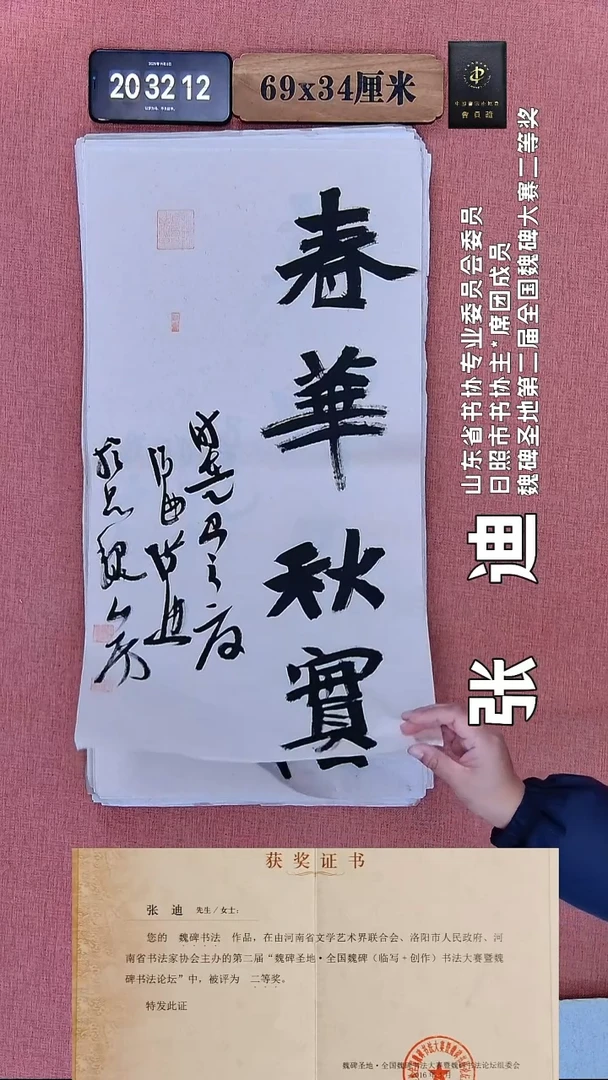 20 32 12
69x34厘米
春華秋實
张迪
山东省书协专业委员会委员
日照市书协主*席团成员
魏碑圣地第二届全国魏碑大赛二等奖
获奖证书
张 迪 先生/女士:
您的 魏碑书法 作品，在由河南省文学艺术界联合会、洛阳市人民政府、河
南省书法家协会主办的第二届“魏碑圣地·全国魏碑（临写+创作）书法大赛暨魏
碑书法论坛”中，被评为 二等奖。
特发此证
魏碑圣地·全国魏碑书法大赛暨魏碑书法论坛组委会